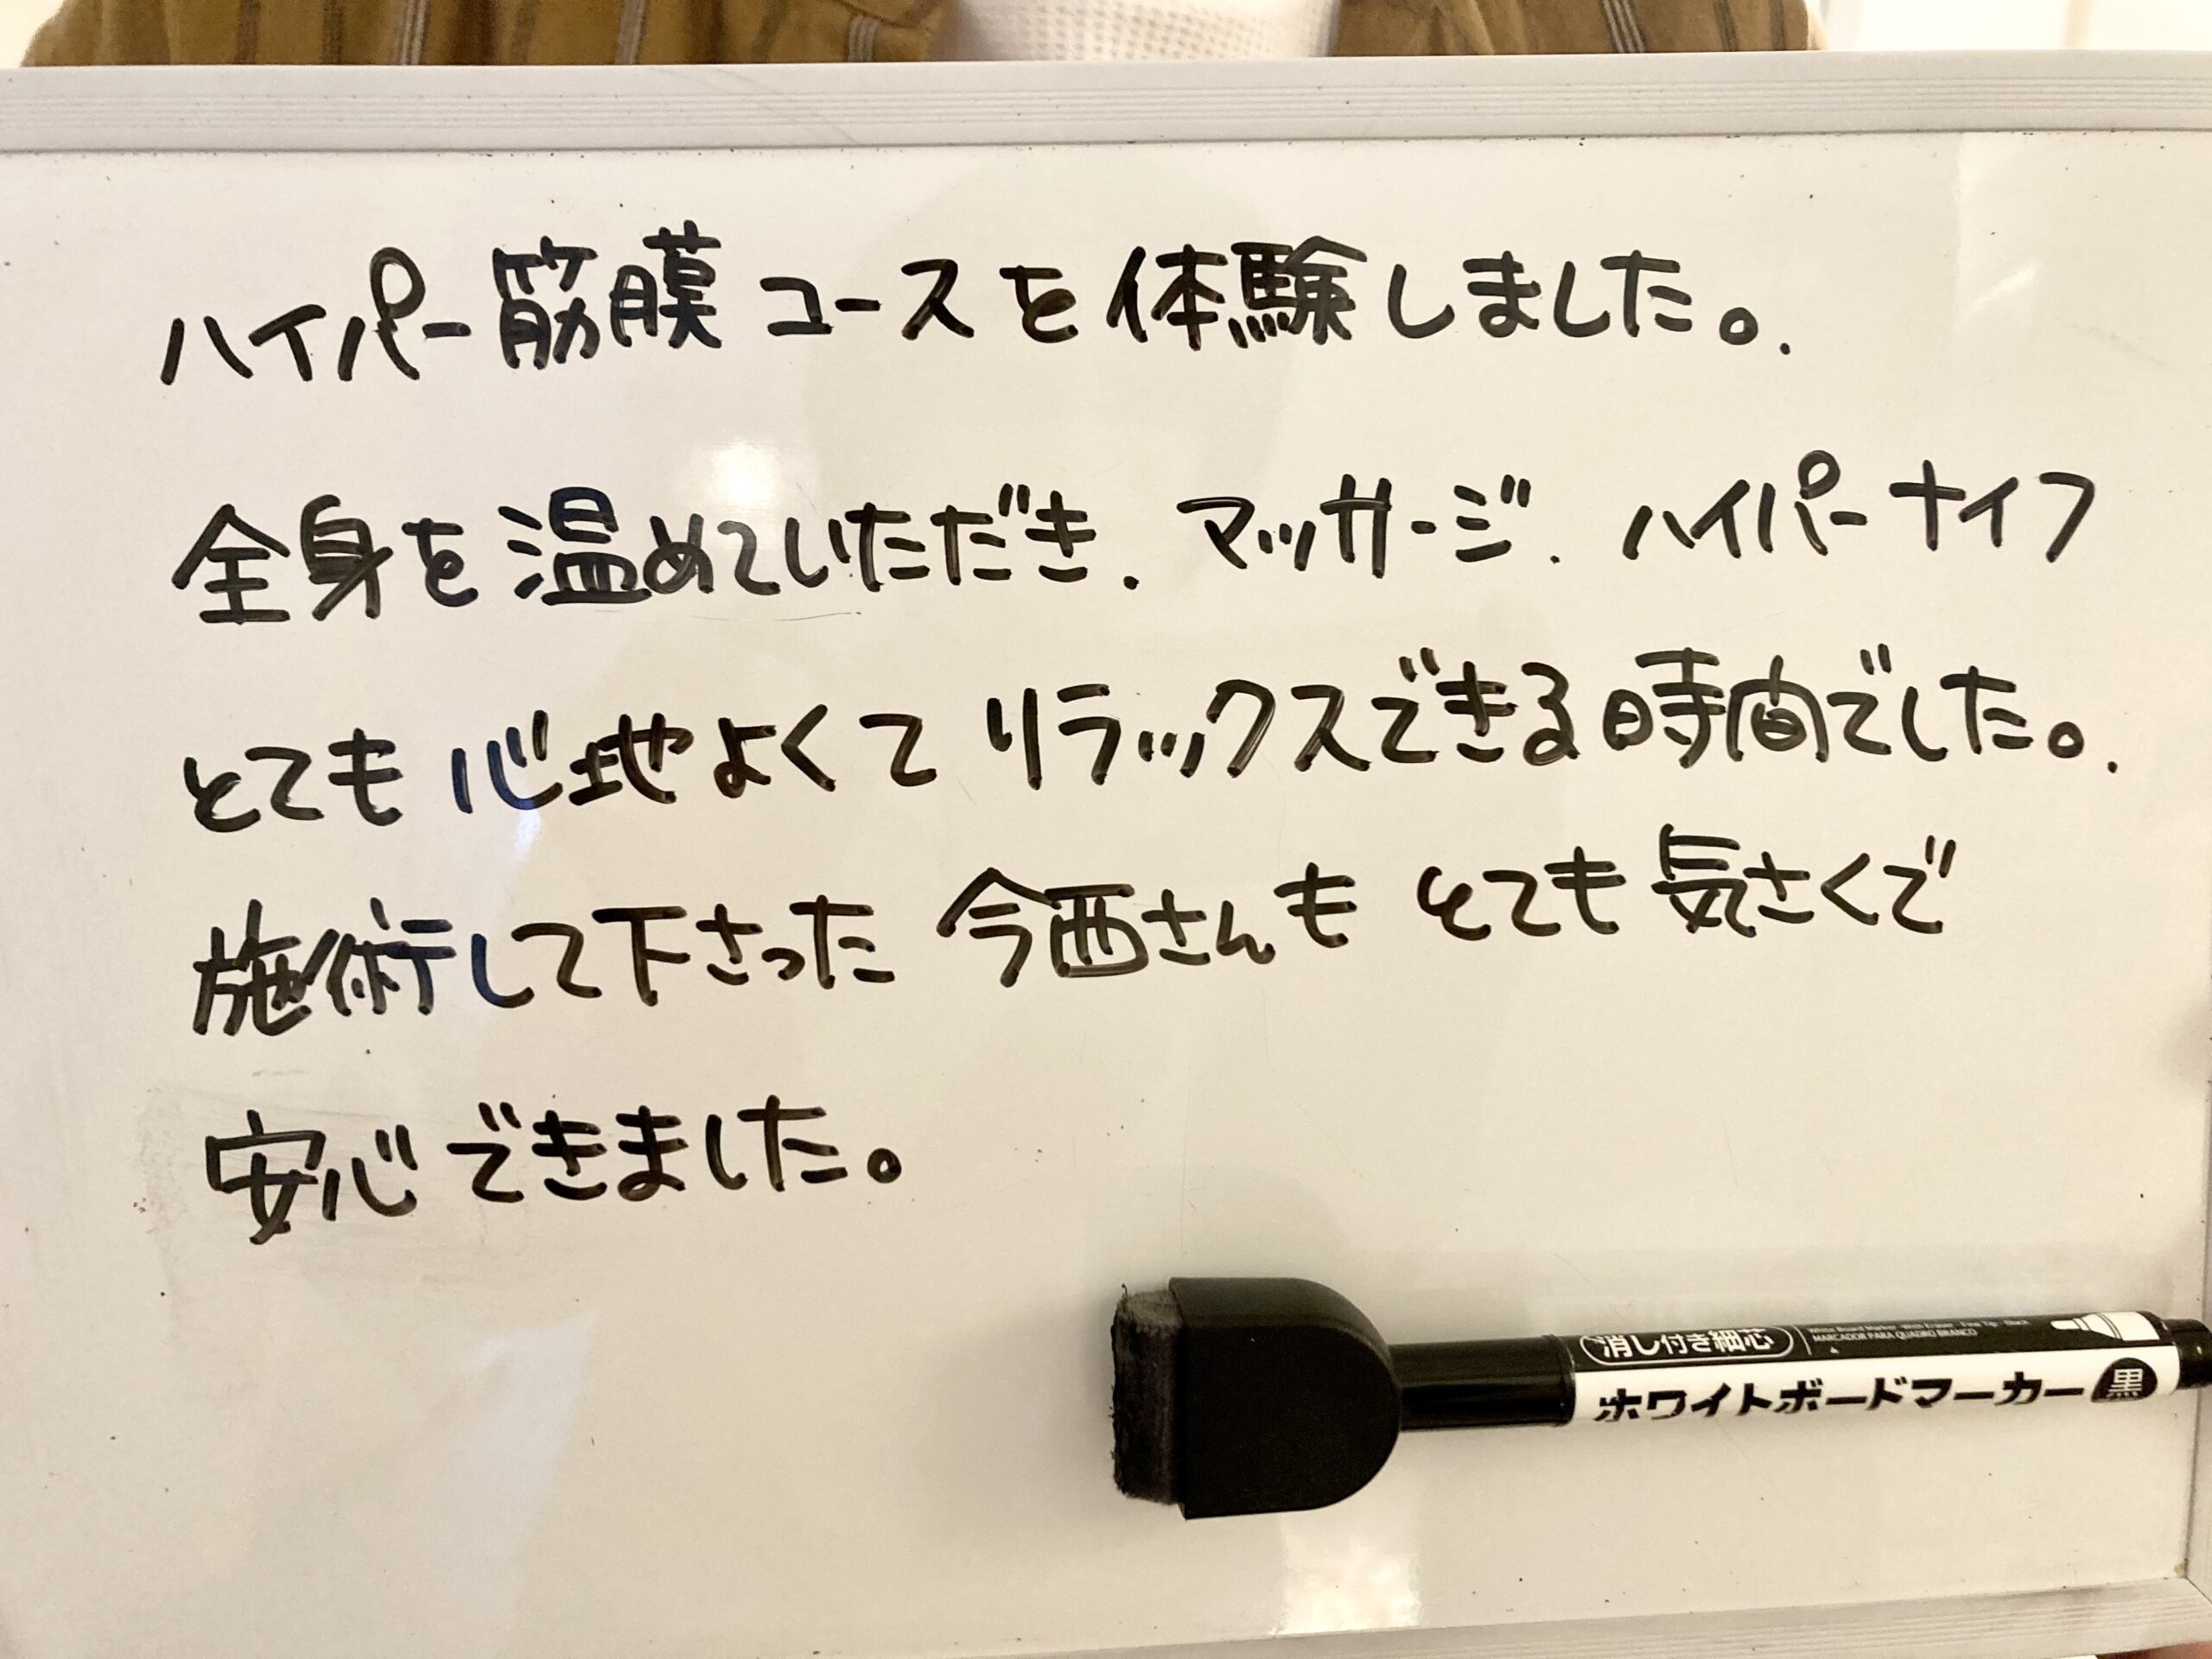 ハイパー筋膜コースを体験しました。
全身を温めていただき、マッサージ、ハイパーナイフ
とても心地よくてリラックスできる時間でした。
施術して下さった今西さんもとても気さくで
安心できました。
消し付き細芯
White Board Marker · With Eraser · Fine Tip · Black
MARCADOR PARA QUADRO BRANCO
ホワイトボードマーカー 黒